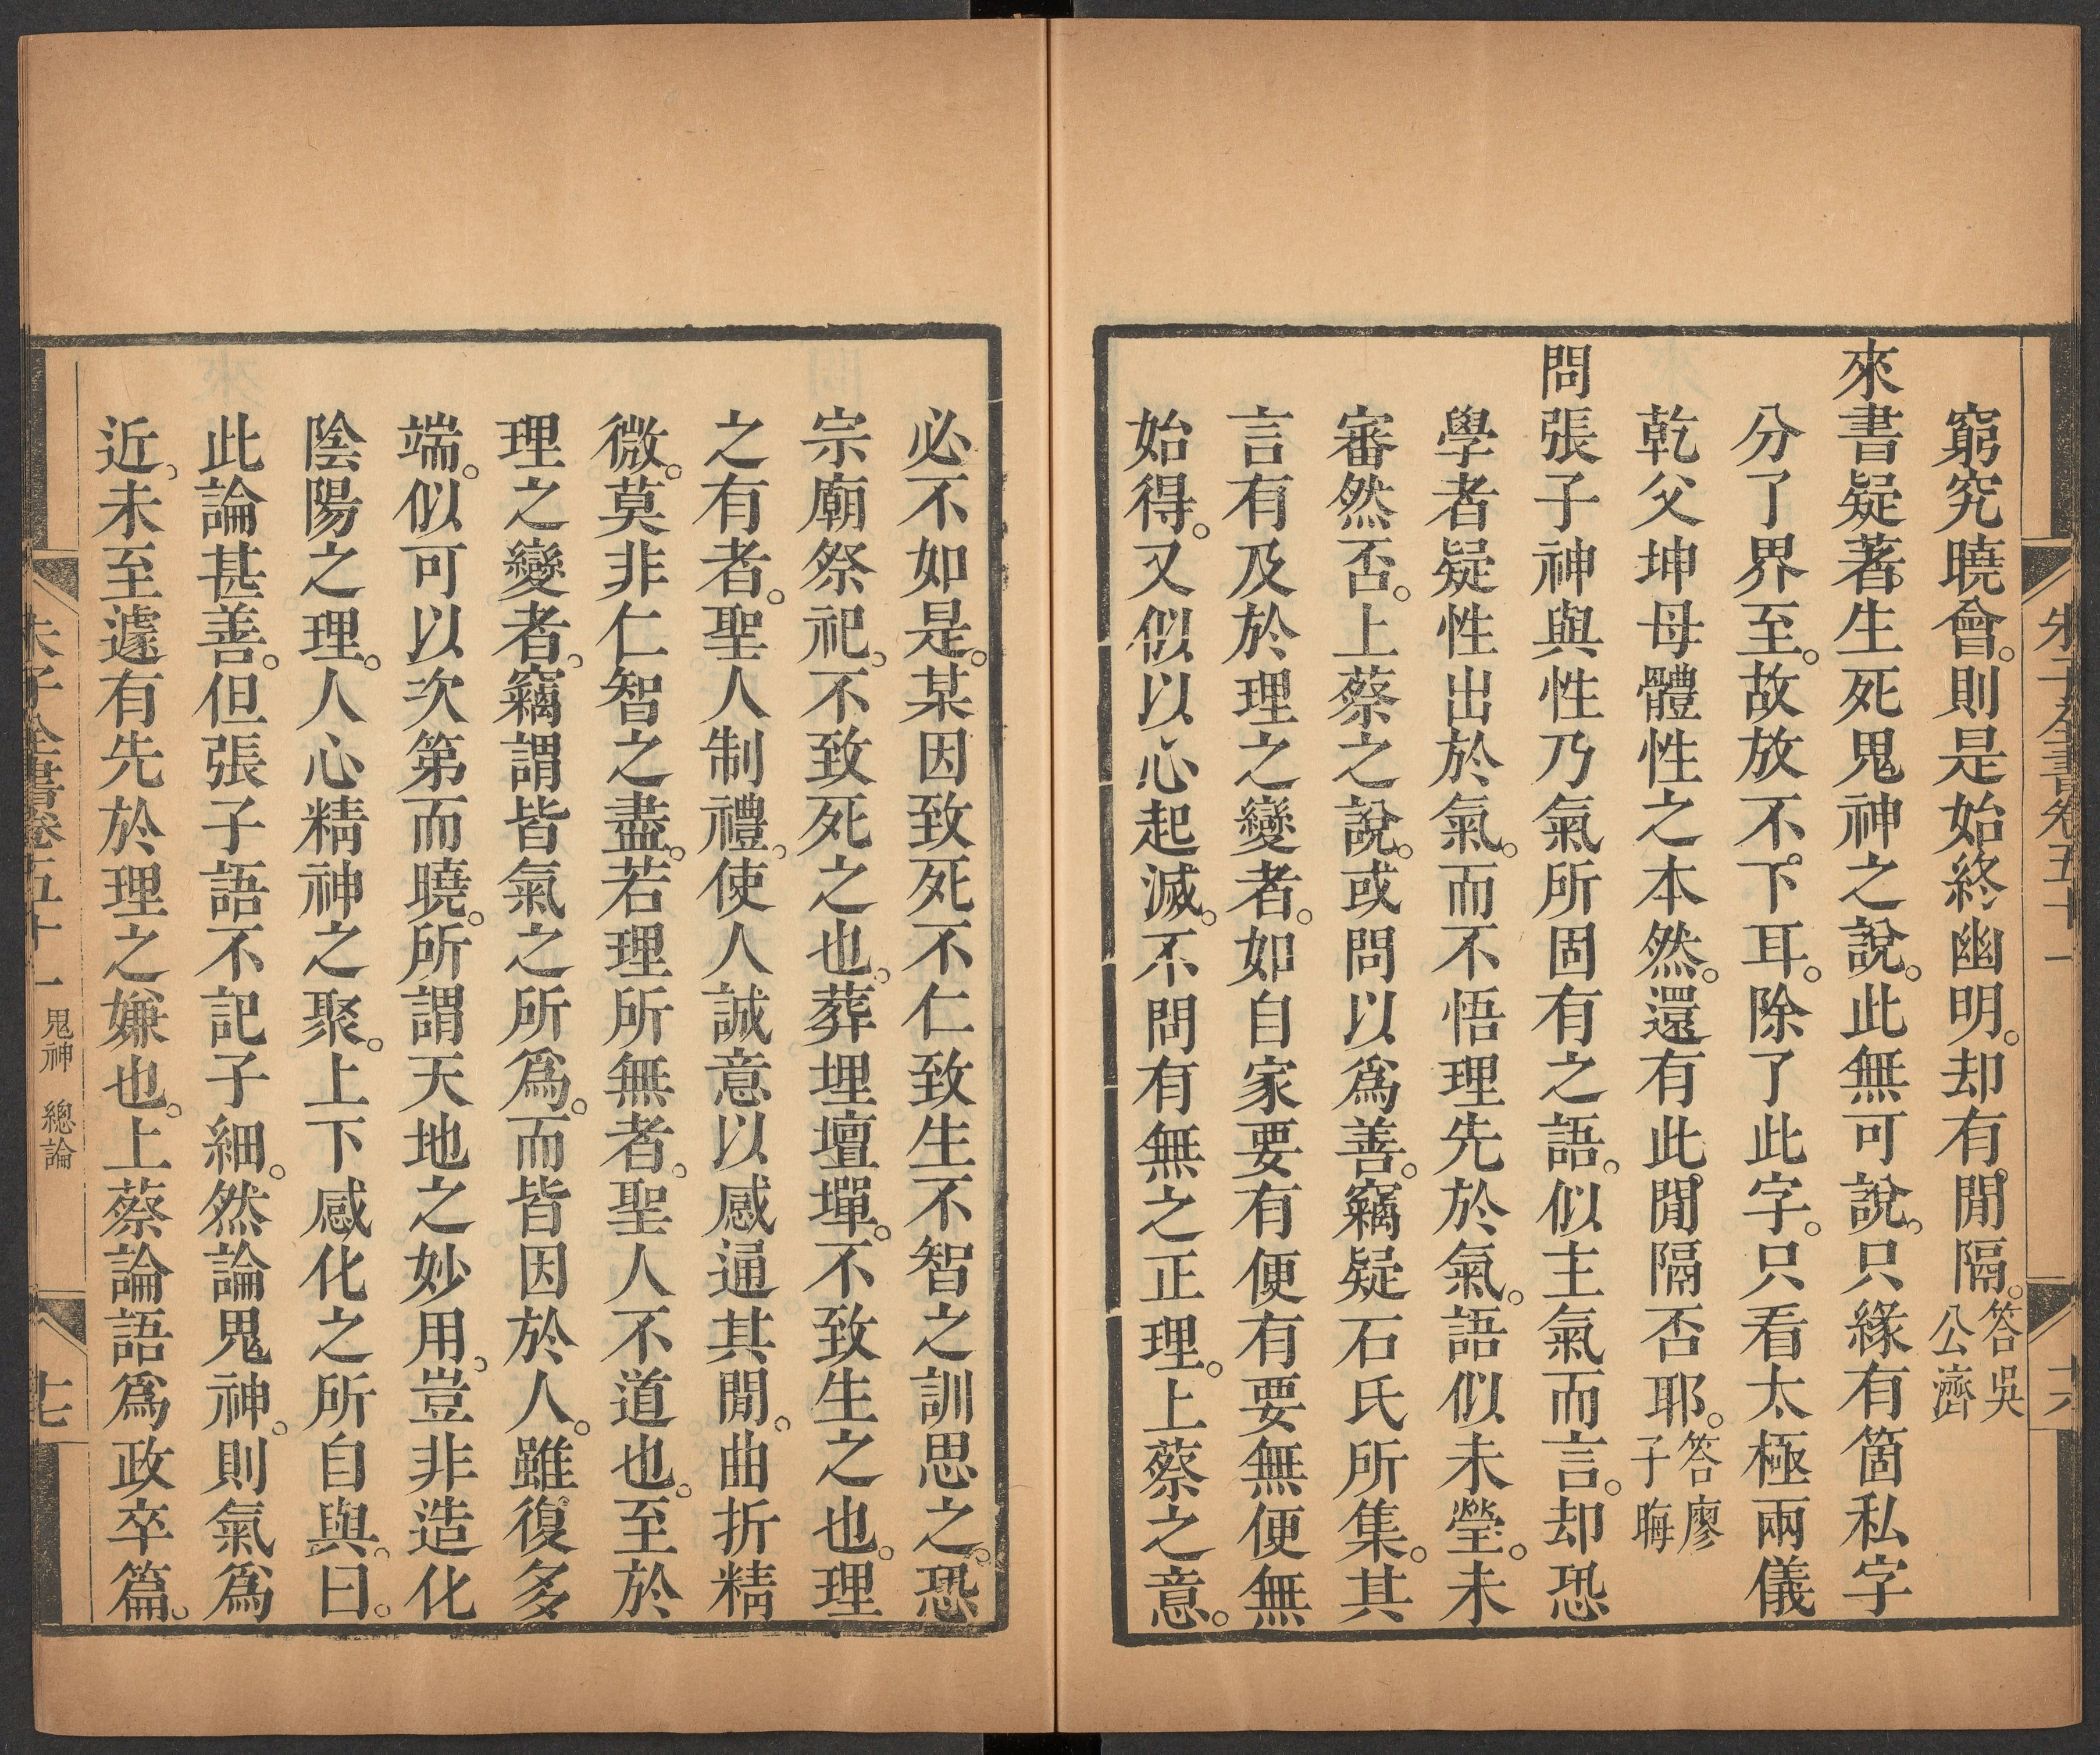 朱子全書卷五十一
十六
窮究曉會。則是始終幽明。却有閒隔。答吳公濟
來書疑著生死鬼神之說。此無可說。只緣有箇私字
分了界至。故放不下耳。除了此字。只看太極兩儀
乾父坤母體性之本然。還有此閒隔否耶。答廖子晦
問張子神與性乃氣所固有之語。似主氣而言。却恐
學者疑性出於氣。而不悟理先於氣。語似未瑩。未
審然否。上蔡之說。或問以爲善。竊疑石氏所集。其
言有及於理之變者。如自家要有便有要無便無
始得。又似以心起滅。不問有無之正理。上蔡之意。
必不如是。某因致死不仁致生不智之訓思之。恐
宗廟祭祀。不致死之也。葬埋壇墠。不致生之也。理
之有者。聖人制禮。使人誠意以感通其閒。曲折精
微。莫非仁智之盡。若理所無者。聖人不道也。至於
理之變者。竊謂皆氣之所爲。而皆因於人。雖復多
端。似可以次第而曉。所謂天地之妙用。豈非造化
陰陽之理。人心精神之聚。上下感化之所自與。曰。
此論甚善。但張子語不記子細。然論鬼神。則氣爲
近。未至遽有先於理之嫌也。上蔡論語爲政卒篇。
朱子全書卷五十一 鬼神 總論
十七